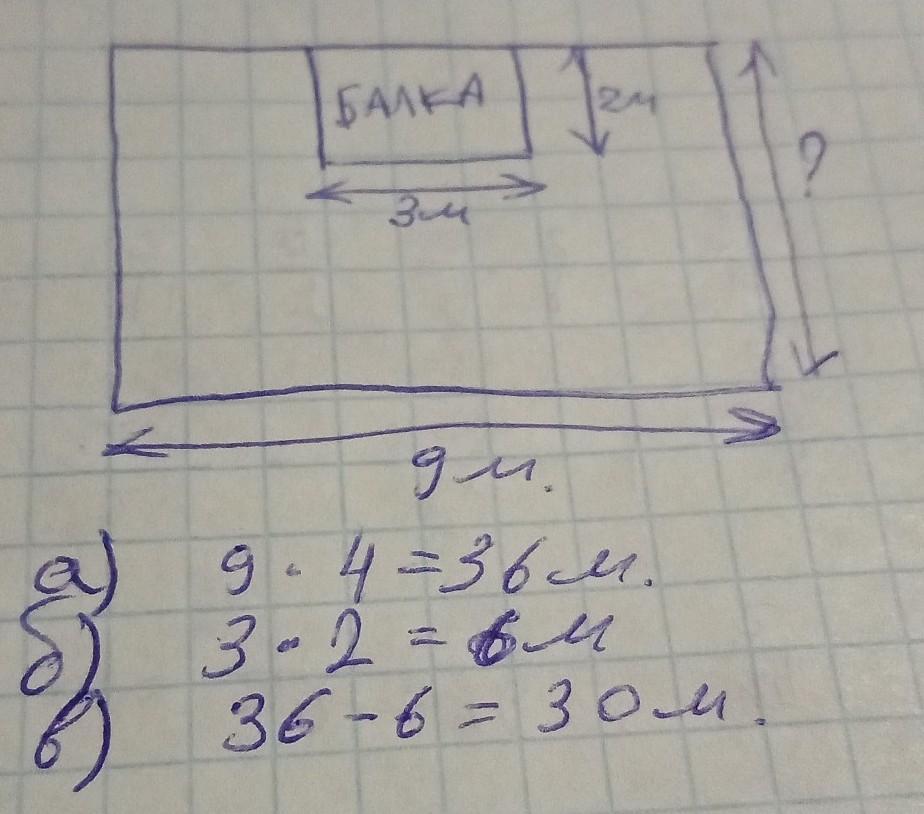 БАЛКА
2м
3м
?
9м.
а) 9 · 4 = 36 м.
б) 3 · 2 = 6м
в) 36 - 6 = 30м.